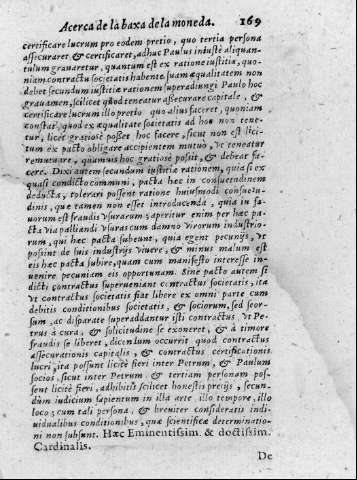 Acerca de la baxa de la moneda. 169
certificare lucrum pro eodem pretio, quo tertia persona
assecuraret & certificaret, adhuc Paulus iniustè aliquan-
tulum grauaretur, quantum est ex ratione iustitiæ, quo-
niam contractus societatis habent suam æqualitatem non
debet secundum iustitiæ rationem superadiungi Paulo hoc
grauamen, scilicet quòd teneatur assecurare capitale, &
certificare lucrum illo pretio quo alius faceret, quoniam
constat, quòd ex æqualitate societatis ad hoc non tene-
tur, licet gratiosè posset hoc facere, sicut non est lici-
tum ex pacto obligare accipientem mutuò, vt teneatur
remutuare, quamuis hoc gratiosè possit, & debeat fa-
cere. Dixi autem secundum iustitiæ rationem, quia si ex
quasi condicto communi, pacta hæc in consuetudinem
deducta, tolerari possent ratione huiusmodi consuetu-
dinis, quæ tamen non esset introducenda, quia in fa-
uorem est fraudis vsurarum; aperitur enim per hæc pa-
cta via palliandi vsuras cum damno virorum industrio-
rum, qui hæc pacta subeunt, quia egent pecunijs, vt
possint de suis industrijs viuere, & minus malum est
eis hæc pacta subire, quam cum manifesto interesse in-
uenire pecuniam eis opportunam. Sine pacto autem si
dicti contractus superueniant contractus societatis, ita
vt contractus societatis fiat libere ex omni parte cum
debitis conditionibus societatis, & sociorum, sed seor-
sum, ac disparate superaddantur isti contractus, vt Pe-
trus à cura, & solicitudine se exoneret, & à timore
fraudis se liberet, dicendum occurrit quod contractus
assecurationis capitalis, & contractus certificationis
lucri, ita possunt licitè fieri inter Petrum, & Paulum
socios, sicut inter Petrum & tertiam personam pos-
sent licitè fieri, adhibitis scilicet honestis precijs, secun-
dùm iudicium sapientum in illa arte, illo tempore, illo
loco; cum tali persona, & breuiter consideratis indi-
uidualibus conditionibus, quæ scientificæ determinatio-
ni non subsunt. Hæc Eminentissim. & doctissim.
Cardinalis.
De